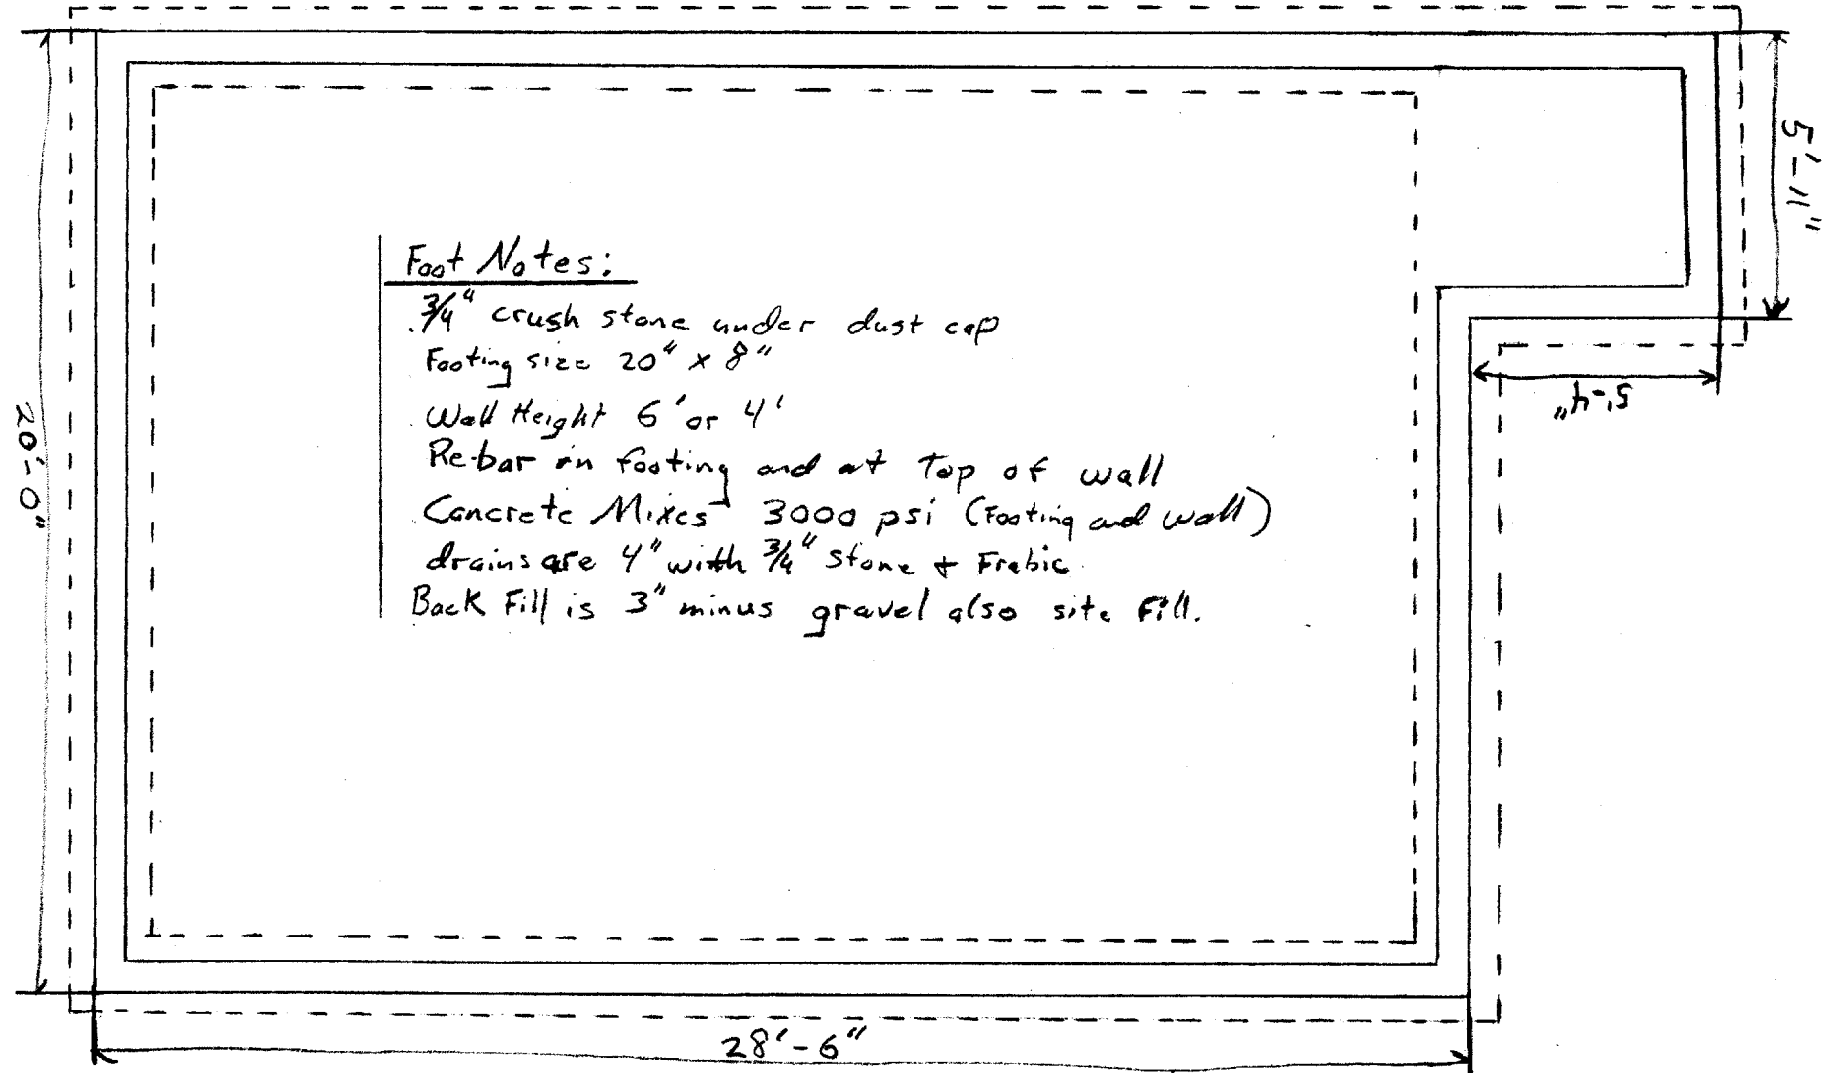 5'-11"
Foot Notes:
3/4" crush stone under dust cap
Footing size 20" x 8"
5'-4"
Wall Height 6' or 4'
20'-0"
Re-bar in footing and at Top of wall
Concrete Mixes 3000 psi (Footing and wall)
drains are 4" with 3/4" Stone + Frabic
Back Fill is 3" minus gravel also site Fill.
28'-6"